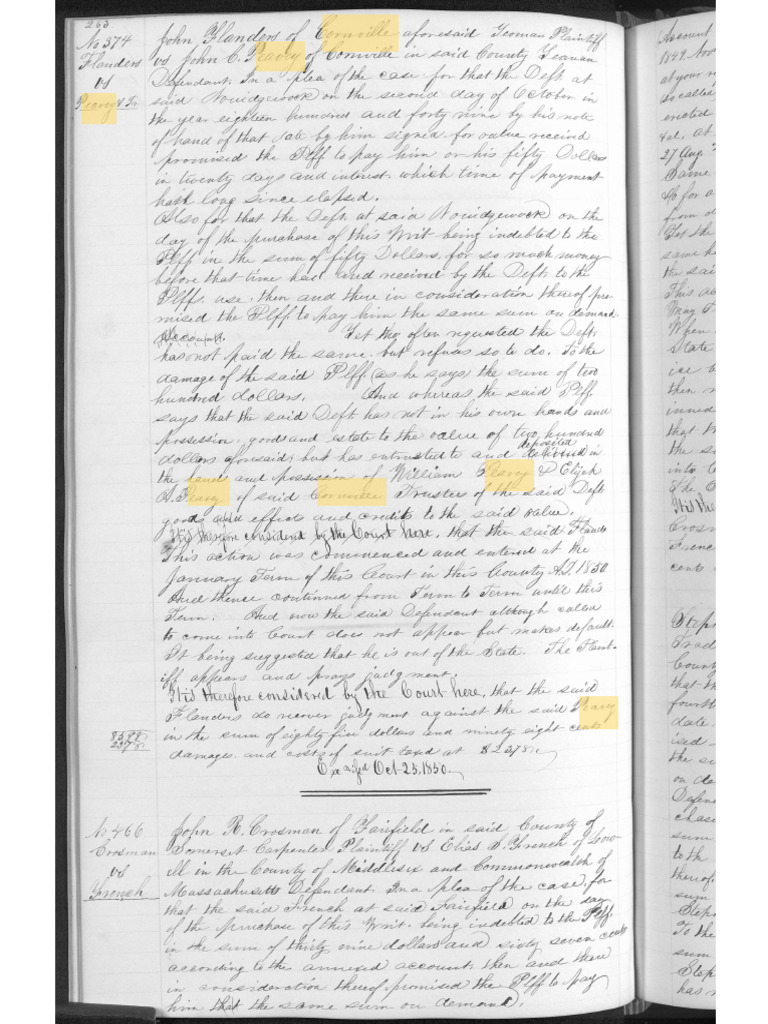 283
No 374
Flanders
vs
Peavey & Tr
John Flanders of Cornville aforesaid Yeoman Plaintiff
vs John C. Peavey of Cornville in said County Yeoman
Defendant. In a plea of the case, for that the Deft. at
said Norridgewock on the second day of October in
the year eighteen hundred and forty nine by his note
of hand of that date by him signed for value received
promised the Plff. to pay him or his fifty Dollars
in twenty days and interest. which time of payment
hath long since elapsed.
Also for that the Deft. at said Norridgewock on the
day of the purchase of this Writ being indebted to the
Plff in the sum of fifty Dollars, for so much money
before that time had and received by the Deft. to the
Plff. use, then and there in consideration thereof pro-
mised the Plff. to pay him the same sum on demand.
Account. Yet tho, often requested the Deft.
has not paid the same, but refuses so to do. To the
damage of the said Plff. (as he says) the sum of two
hundred dollars. And whereas the said Plff.
says that the said Deft has not in his own hands and
possession, goods and estate to the value of two hundred
dollars aforesaid, but has entrusted to and deposited in
the hand and possession of William Peavey & Elijah
A. Peavy of said Cornville Trustees of the said Deft
goods effects and credits to the said value.
It is therefore considered by the Court here, that the said Flanders
This action was commenced and entered at the
January Term of this Court in this County A.D. 1850
And thence continued from Term to Term until this
Term. And now the said Defendant although called
to come into Court does not appear but makes default.
It being suggested that he is out of the State. The Plaint-
iff appears and prays judgment.
It is therefore considered by the Court here, that the said
Flanders do recover judgment against the said Peavy
in the sum of eighty five dollars and ninety eight cents
damages and cost of suit taxed at
Oct. 25, 1850.
No 466
Crosman
vs
French
John R. Crosman of Fairfield in said County of
Somerset Carpenter Plaintiff vs Elias S. French of Low-
ell in the County of Middlesex and Commonwealth of
Massachusetts Defendant. In a plea of the case, for
that the said French at said Fairfield on the day
of the purchase of this Writ, being indebted to the Plff.
in the sum of thirty nine dollars and sixty seven cents
according to the annexed account, then and there
in consideration thereof, promised the Plff to pay
him that the same sum on demand.
Account
1849. Nov
at your
so called
erected
at
27 Aug.
Same
for a
Yet the
same
the said
This
May
When
State
then
that
the
into
The
It is there
Crosman
French
cents
Court
that
fourth
date
on
sum
to the
thereof
sum
To the
sum
has